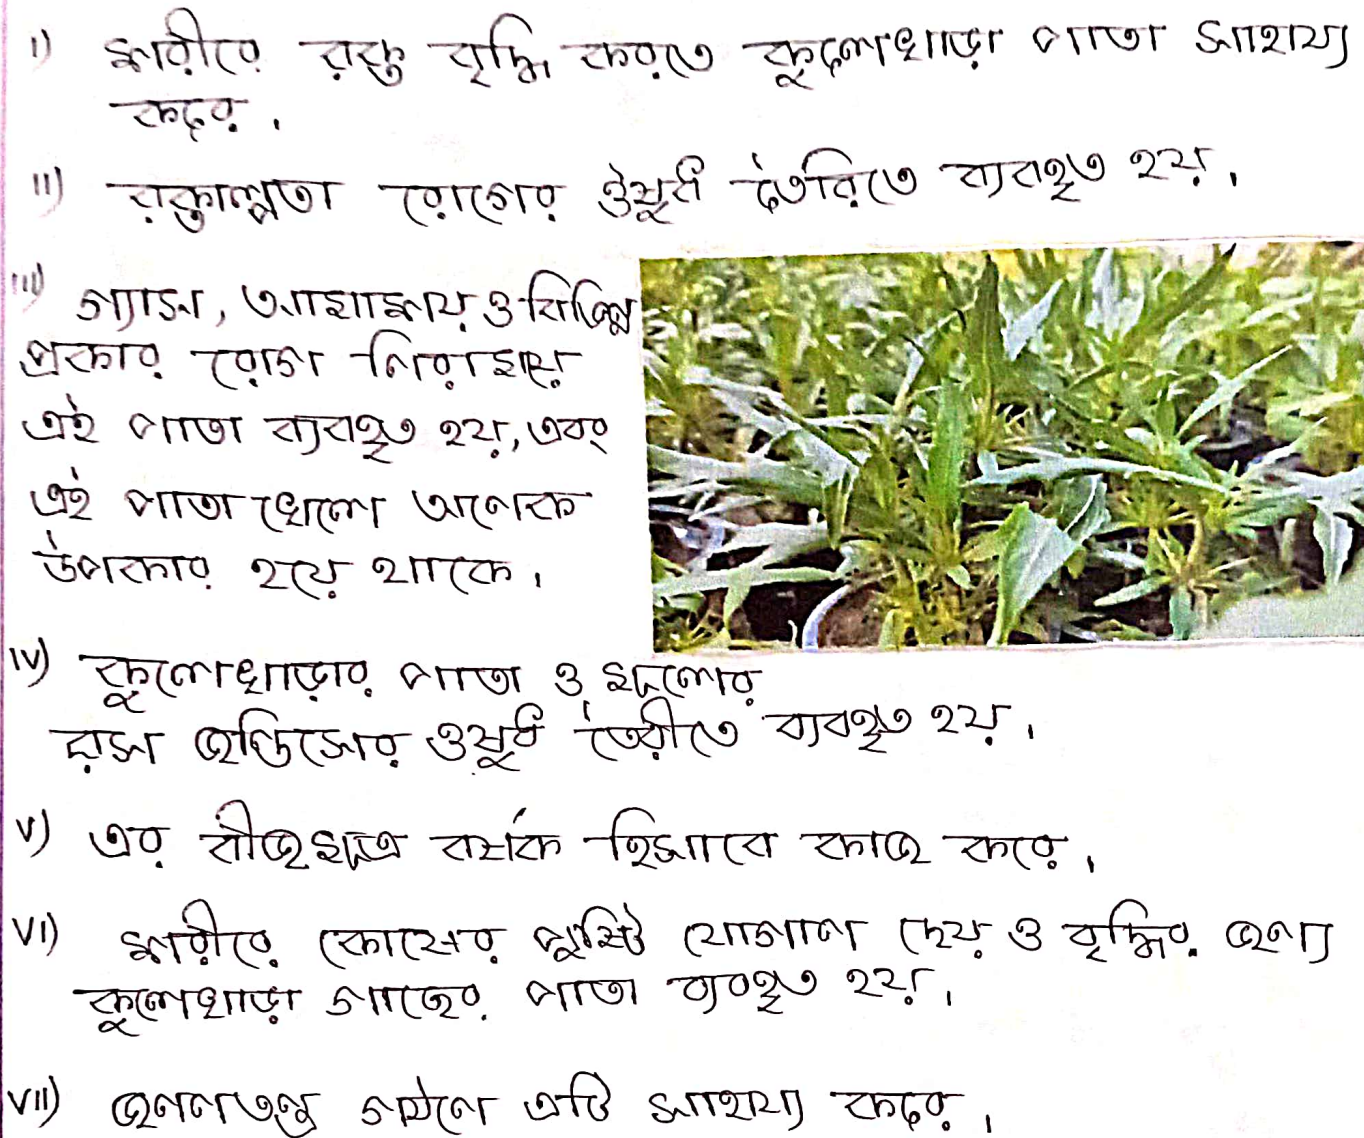 i) শরীরে রক্ত বৃদ্ধি করতে কুলেখাড়া পাতা সাহায্য
করে।
ii) রক্তাল্পতা রোগের ঔষুধ তৈরিতে ব্যবহৃত হয়।
iii) গ্যাস, আমাশয় ও বিভিন্ন
প্রকার রোগ নিরাময়ে
এই পাতা ব্যবহৃত হয়, এবং
এই পাতা খেলে অনেক
উপকার হয়ে থাকে।
iv) কুলেখাড়ার পাতা ও মূলের
রস জন্ডিসের ওষুধ তৈরীতে ব্যবহৃত হয়।
v) এর বীজ মূত্র বর্ধক হিসাবে কাজ করে।
vi) শরীরে কোষের পুষ্টি যোগান দেয় ও বৃদ্ধির জন্য
কুলেখাড়া গাছের পাতা ব্যবহৃত হয়।
vii) জননতন্ত্র গঠনে এটি সাহায্য করে।